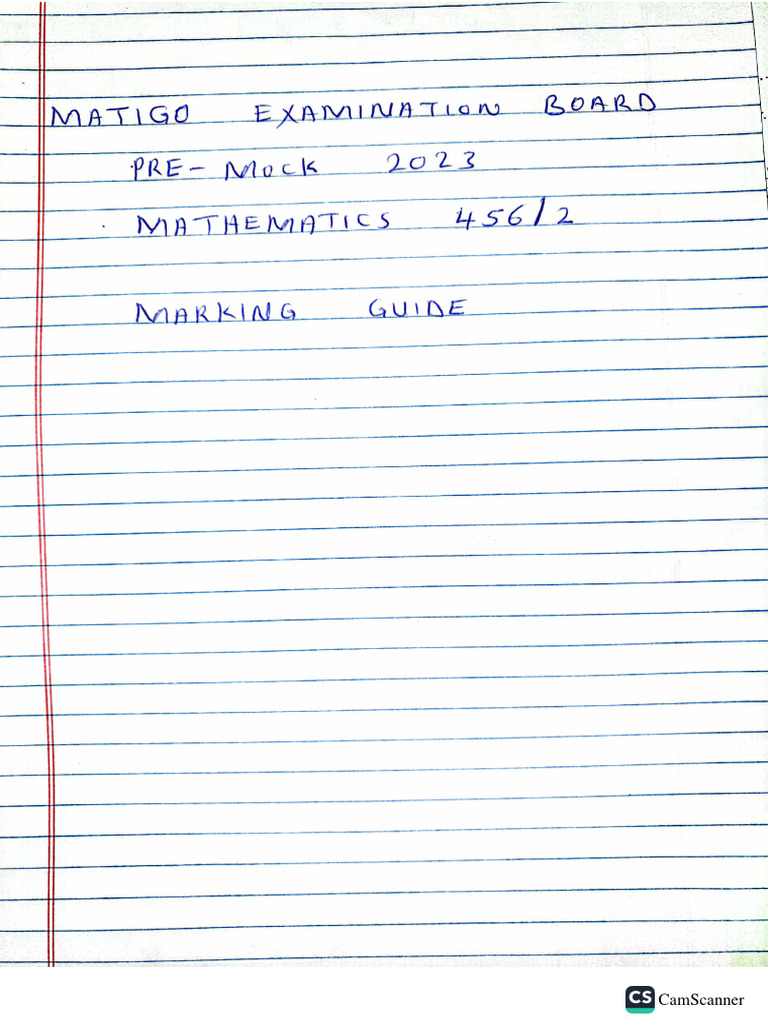 MATIGO EXAMINATION BOARD
PRE-MOCK 2023
MATHEMATICS 456/2
MARKING GUIDE
CS CamScanner